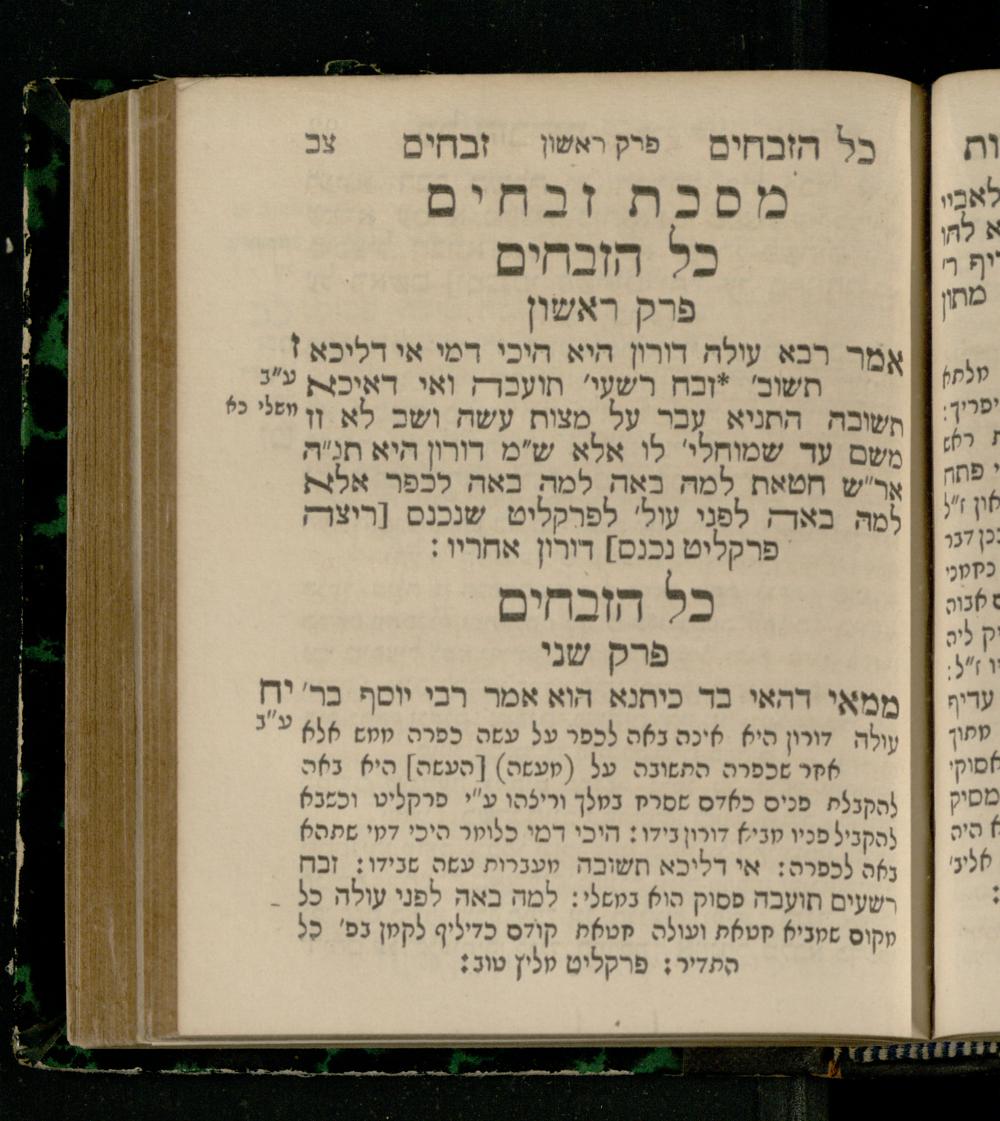 כל הזבחים פרק ראשון זבחים צב
מסכת זבחים
כל הזבחים
פרק ראשון
אמר רבא עולה דורון היא היכי דמי אי דליכא ז
תשוב׳ *זבח רשעי׳ תועבה ואי דאיכא ע״ב
תשובה התניא עבר על מצות עשה ושב לא זז משלי כא
משם עד שמוחלי׳ לו אלא ש״מ דורון היא תנ״ה
אר״ש חטאת למה באה למה באה לכפר אלא
למה באה לפני עול׳ לפרקליט שנכנס [ריצה
פרקליט נכנס] דורון אחריו :
כל הזבחים
פרק שני
ממאי דהאי בד כיתנא הוא אמר רבי יוסף בר׳ יח
עולה דורון היא אינה באה לכפר על עשה כפרה ממש אלא ע״ב
אחר שכפרה התשובה על (מעשה) [העשה] היא באה
להקבלת פנים כאדם שסרח במלך וריצהו ע״י פרקליט וכשבא
להקביל פניו מביא דורון בידו : היכי דמי כלומר היכי דמי שתהא
באה לכפרה : אי דליכא תשובה מעברות עשה שבידו : זבח
רשעים תועבה פסוק הוא במשלי : למה באה לפני עולה כל
מקום שמביא חטאת ועולה חטאת קודם כדיליף לקמן בפ׳ כל
התדיר : פרקליט מליץ טוב :
ות
לאביו
א להו
דיף ר׳
מתון
מלתא
יפריך :
ת ראש
י פתח
און ז״ל
כן דבר
כחמכי
ם אבוה
יק ליה
ו ז״ל :
עדיף
מתוך
אסוקי
מסיק
א היה
אליב׳
: